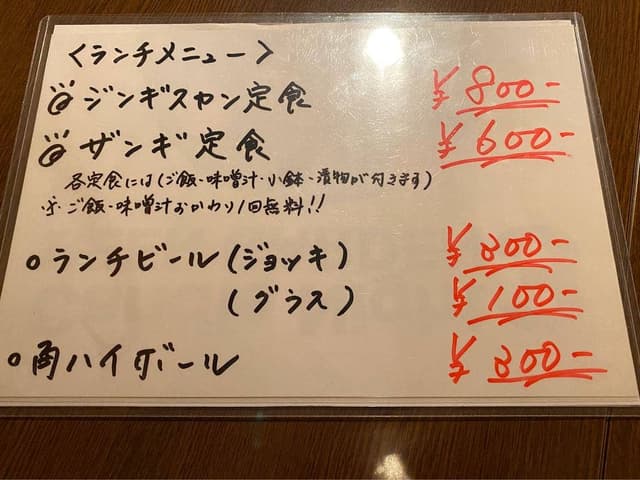 〈ランチメニュー〉
ジンギスカン定食 ¥800-
ザンギ定食 ¥600-
各定食には(ご飯・味噌汁・小鉢・漬物が付きます)
※ご飯・味噌汁おかわり1回無料!!
○ランチビール(ジョッキ) ¥300-
(グラス) ¥100-
○角ハイボール ¥300-